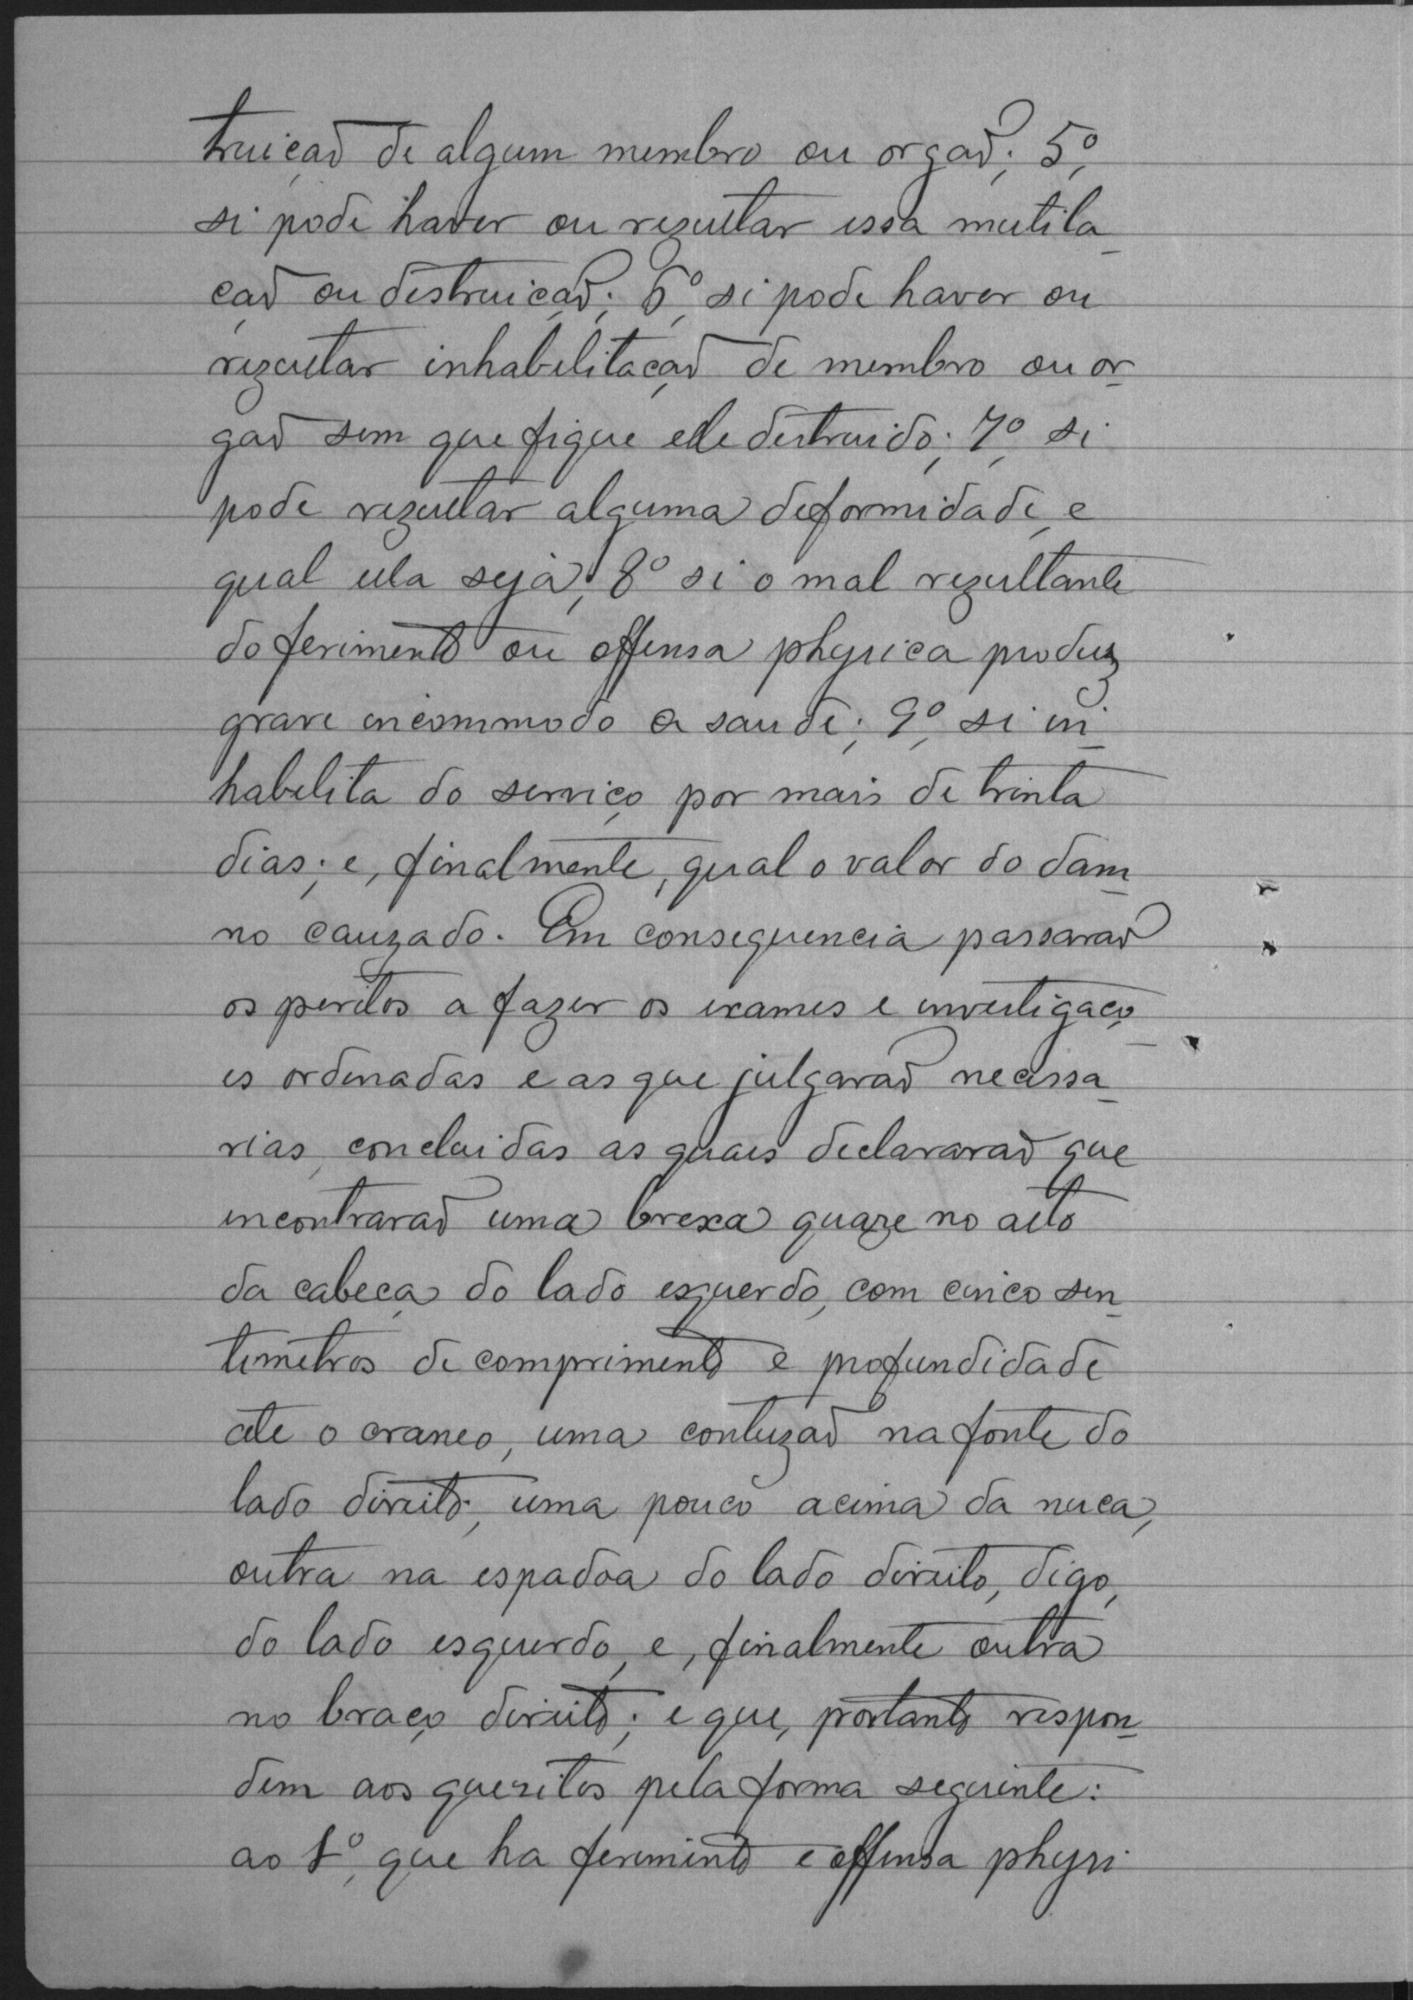 truiçaõ de algum membro ou orgaõ; 5º,
si pode haver ou rezultar essa mutila-
çaõ ou destruiçaõ; 6º, si pode haver ou
rezultar inhabelitaçaõ de membro ou or-
gaõ sem que fique elle destruido; 7º, si
pode rezultar alguma deformidade, e
qual ella seja; 8º si o mal rezultante
do ferimento ou offensa physica produz
grave incommodo a saude; 9º, si in-
habelita do serviço por mais de trinta
dias; e, finalmente, qual o valor do dam-
no cauzado. Em consequencia passaraõ
os peritos a fazer os exames e investigaço-
es ordenadas e as que julgaraõ necessa-
rias, concluidas as quaes declararaõ que
encontraraõ uma brexa quaze no alto
da cabeça do lado esquerdo, com cinco sen-
timetros de comprimento e profundidade
até o craneo, uma contuzaõ na fonte do
lado direito; uma pouco acima da nuca,
outra na espadoa do lado direito, digo,
do lado esquerdo, e, finalmente outra
no braço direito; e que, portanto respon-
dem aos quezitos pela forma seguinte:
ao 1º, que ha ferimento e offensa physi-